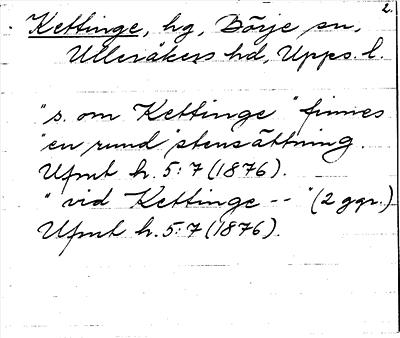 2.
Kettinge, hg, Börje sn,
Ulleråkers hd, Upps. l.
"s. om Kettinge" finnes
"en rund" stensättning.
Ufmt h. 5:7 (1876).
"vid Kettinge --" (2 ggr.)
Ufmt h. 5:7 (1876).